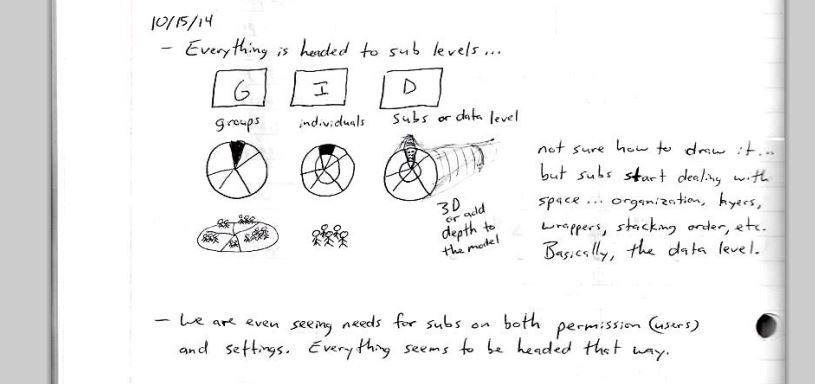 10/15/14
- Everything is headed to sub levels...
G I D
groups individuals subs or data level
not sure how to draw it...
but subs start dealing with
space... organization, layers,
wrappers, stacking order, etc.
Basically, the data level.
3D
or add
depth to
the model
- We are even seeing needs for subs on both permission (users)
and settings. Everything seems to be headed that way.